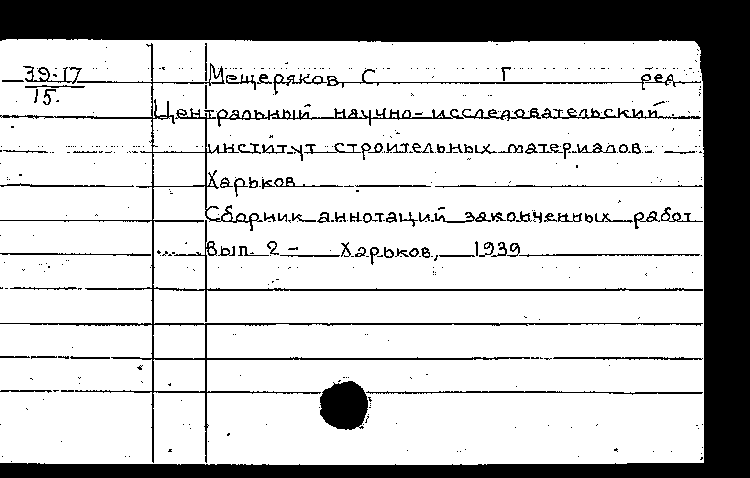 39-17
15.
Мещеряков, С. Г ред
Центральный научно-исследовательский
институт строительных материалов
Харьков
Сборник аннотаций законченных работ
... вып. 2 - Харьков, 1939